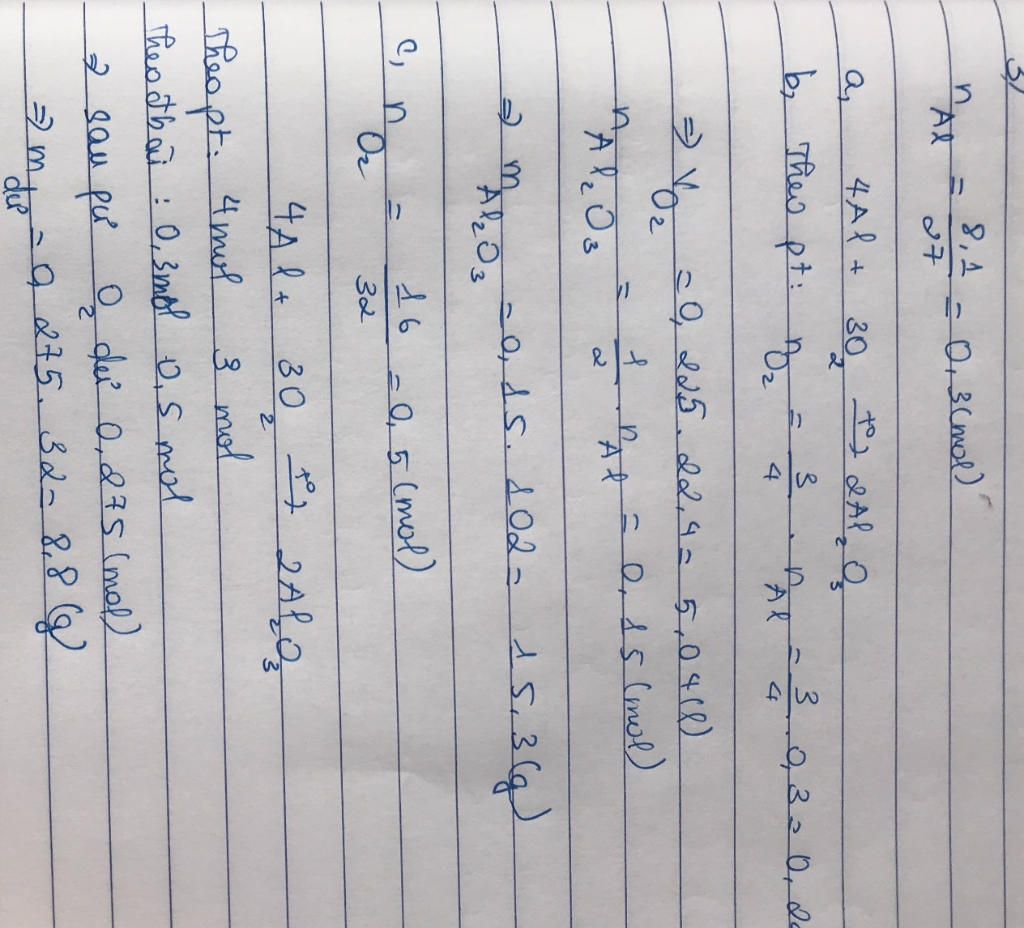 3)
n Al = 8,1/27 = 0,3(mol)
a, 4Al + 3O2 t°→ 2Al2O3
b, Theo pt: nO2 = 3/4 . nAl = 3/4 . 0,3 = 0,22
⇒ VO2 = 0,225. 22,4 = 5,04(l)
nAl2O3 = 1/2 . nAl = 0,15(mol)
⇒ mAl2O3 = 0,15. 102 = 15,3(g)
c, nO2 = 16/32 = 0,5(mol)
4Al + 3O2 t°→ 2Al2O3
Theo pt: 4mol 3 mol
Theo đbài : 0,3mol 0,5 mol
⇒ sau pư O2 dư 0,275(mol)
⇒ m dư = 0,275. 32 = 8,8(g)